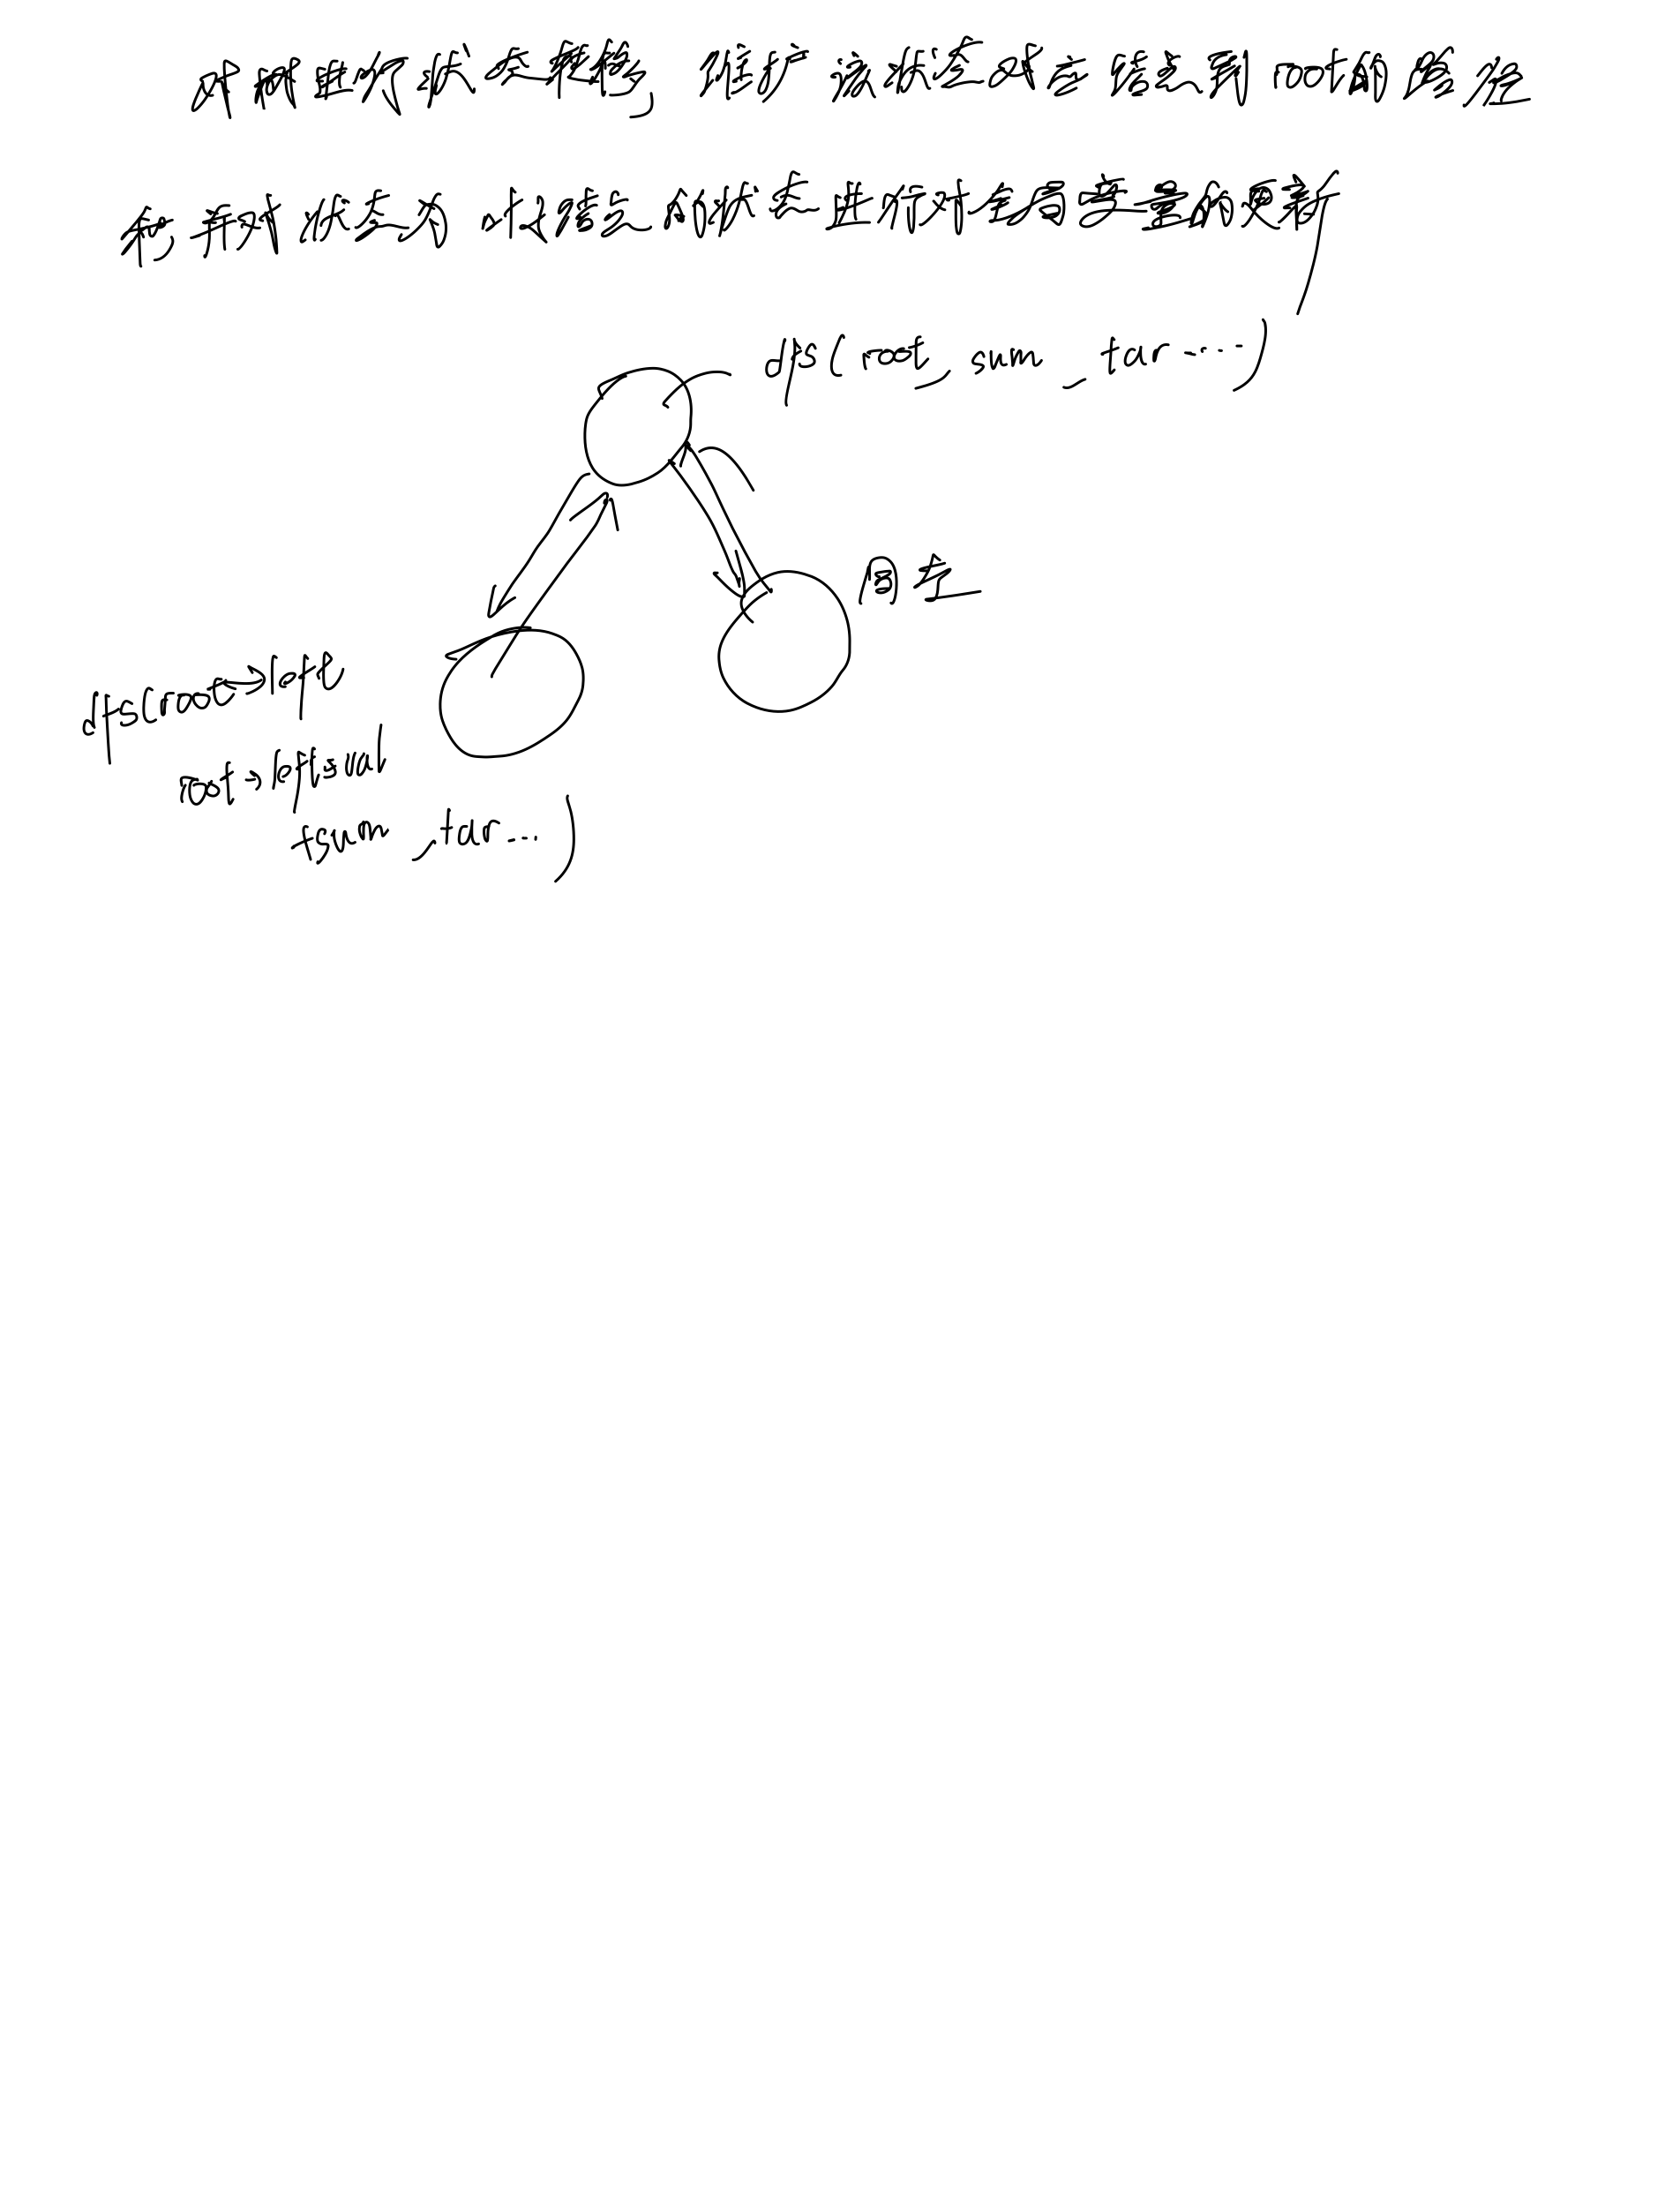 对树进行状态转移, 维护的状态就是结点到root的路径
和,并把状态分成以左右的状态进行对本层变量的更新
dfs(root, sum, tar....)
同左
dfs(root->left
root->left->val
+sum, tar...)